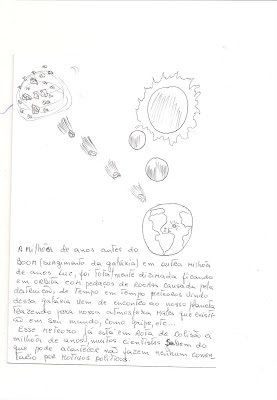 A milhões de anos antes do
BOOM (surgimento da galáxia) em outra milhões
de anos luz, foi totalmente dizimada ficando
em orbita com pedaços de rochas causada pela
destruição, de tempo em tempo petrechos vindo
dessa galáxia vem de encontro ao nosso planeta
trazendo para nossa atmosfera males que existi-
ão em seu mundo, como gripe, etc...
Esse meteoro já está em rota de colisão a
milhões de anos, muitos cientistas sabem do
que pode acontecer não fazem nenhum comen
tário por motivos políticos.